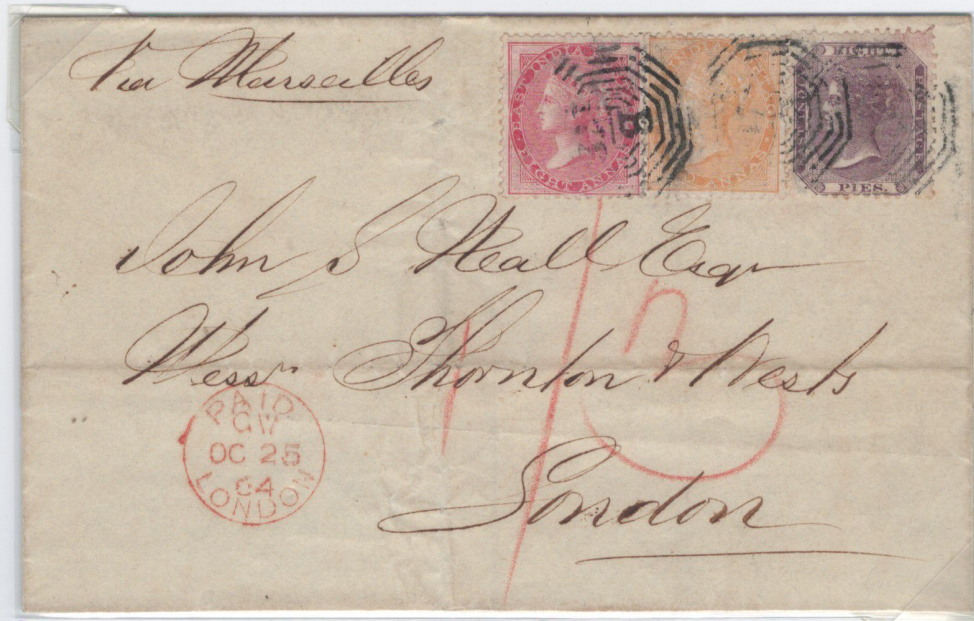 Via Marseilles
EAST INDIA
EIGHT ANNAS
INDIA
ANNAS
EIGHT
POSTAGE
PIES.
John S Neall Esqr
Messrs Thornton & Wests
London
1/3
PAID
GW
OC 25
64
LONDON